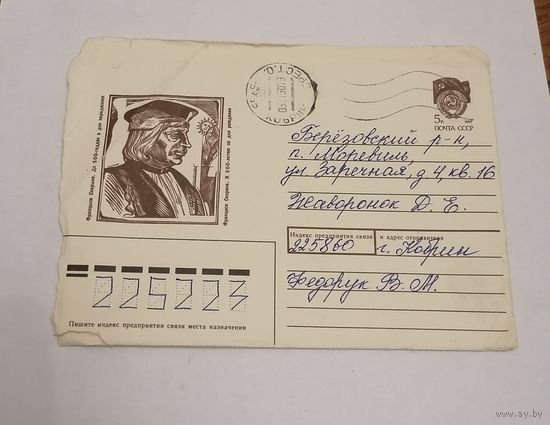 Францыск Скарына. Да 500-годдзя з дня нараджэння
Франциск Скорина. К 500-летию со дня рождения
КОБРИН
5к
ПОЧТА СССР
Берёзовский р-н,
п.
ул Заречная, д 4, кв. 16
Жаворонок Д. Е.
Индекс предприятия связи и адрес отправителя
225860 г. Кобрин
Федорук В. М.
225223
Пишите индекс предприятия связи места назначения
www.ay.by